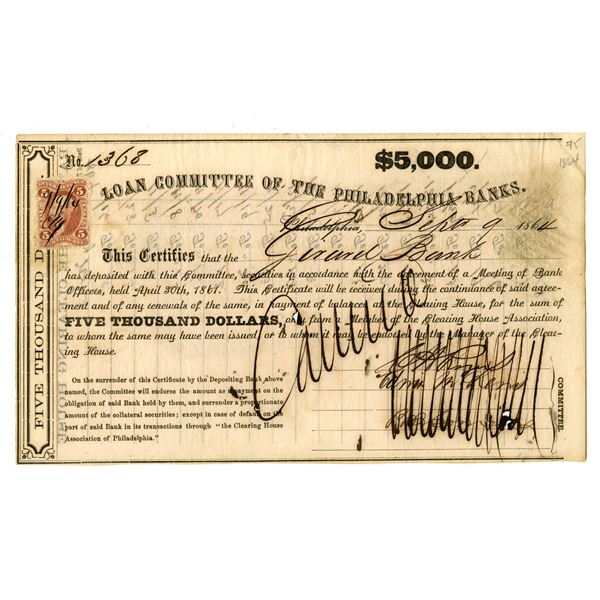 No. 1368
$5,000.
95
1864
LOAN COMMITTEE OF THE PHILADELPHIA BANKS.
Philadelphia, Septr 9 1864
This Certifies that the Girard Bank
has deposited with this Committee, securities in accordance with the agreement of a Meeting of Bank
Officers, held April 30th, 1861. This Certificate will be received during the continuance of said agree-
ment and of any renewals of the same, in payment of balances at the Clearing House, for the sum of
FIVE THOUSAND DOLLARS, only from a Member of the Clearing House Association,
to whom the same may have been issued or to whom it may be endorsed by the Manager of the Clear-
ing House.
Cancelled
On the surrender of this Certificate by the Depositing Bank above
named, the Committee will endorse the amount as a payment on the
obligation of said Bank held by them, and surrender a proportionate
amount of the collateral securities; except in case of default on the
part of said Bank in its transactions through "the Clearing House
Association of Philadelphia."
COMMITTEE.
FIVE THOUSAND D
5 5